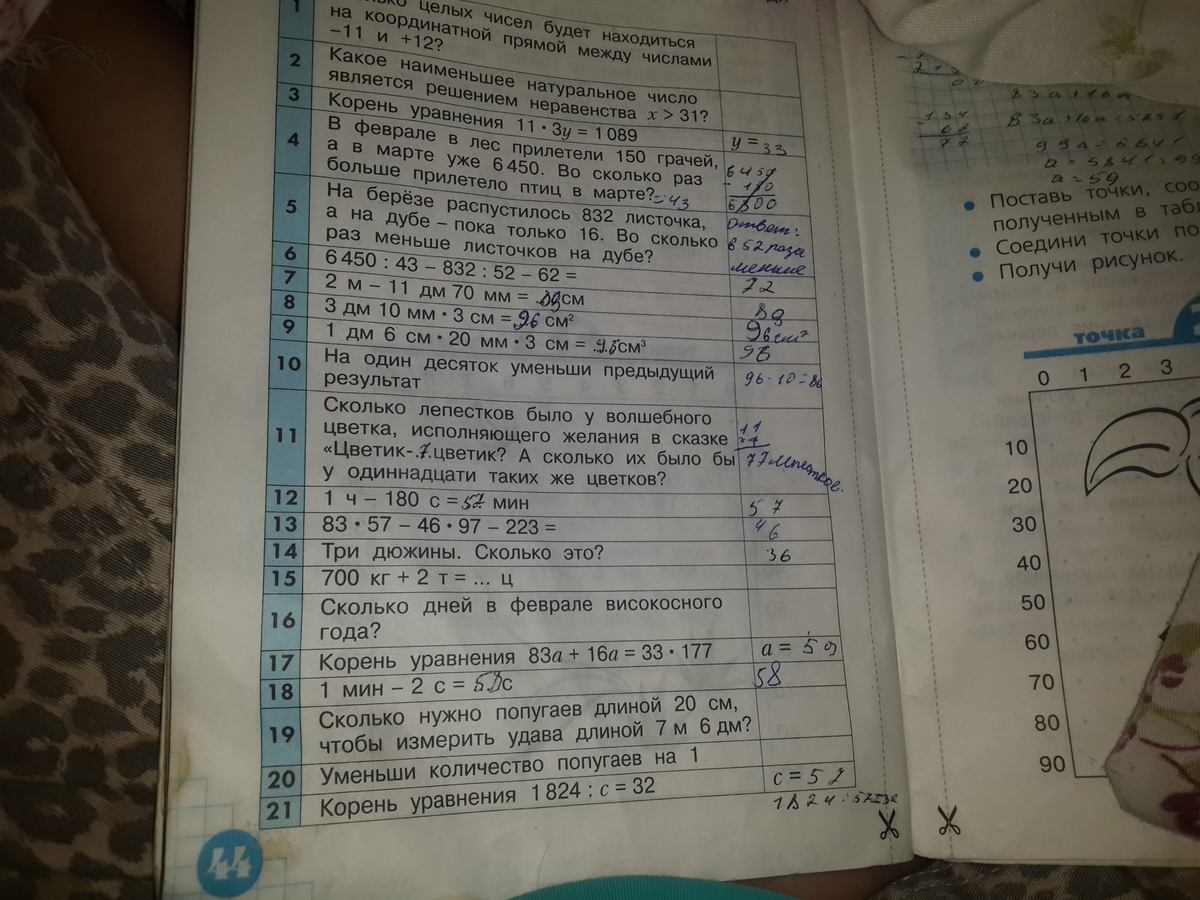 1
целых чисел будет находиться
на координатной прямой между числами
−11 и +12?
2
Какое наименьшее натуральное число
является решением неравенства x > 31?
3
Корень уравнения 11 · 3y = 1 089
y = 33
4
В феврале в лес прилетели 150 грачей,
а в марте уже 6 450. Во сколько раз
больше прилетело птиц в марте? = 43
6450
5
На берёзе распустилось 832 листочка,
а на дубе – пока только 16. Во сколько
раз меньше листочков на дубе?
ответ:
в 52 раза
меньше
6
6 450 : 43 – 832 : 52 – 62 =
72
7
2 м – 11 дм 70 мм = 89 см
89
8
3 дм 10 мм · 3 см = 96 см²
96 см²
9
1 дм 6 см · 20 мм · 3 см = см³
96
10
На один десяток уменьши предыдущий
результат
96 - 10 = 86
11
Сколько лепестков было у волшебного
цветка, исполняющего желания в сказке
«Цветик-.7.цветик? А сколько их было бы
у одиннадцати таких же цветков?
11
×7
77 лепестков.
12
1 ч – 180 с = 57 мин
57
13
83 · 57 – 46 · 97 – 223 =
46
14
Три дюжины. Сколько это?
36
15
700 кг + 2 т = ... ц
16
Сколько дней в феврале високосного
года?
17
Корень уравнения 83a + 16a = 33 · 177
a = 59
18
1 мин – 2 с = 58 с
58
19
Сколько нужно попугаев длиной 20 см,
чтобы измерить удава длиной 7 м 6 дм?
20
Уменьши количество попугаев на 1
21
Корень уравнения 1 824 : c = 32
c = 57
44
99a = 5841
a = 5841 : 99
a = 59
• Поставь точки, соо
полученным в табл
• Соедини точки по
• Получи рисунок.
точка
0 1 2 3
10
20
30
40
50
60
70
80
90